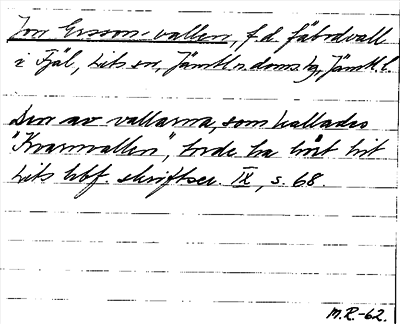 Jon Ersson-vallen, f.d. fäbodvall
i Fjäl, Lits sn, Jämtl:s domsg, Jämtl. l.
Den av vallarna, som kallades
"Kvarnvallen", torde ha hört hit
Lits hbf. skriftser. IX, s. 68.
M.R.-62.